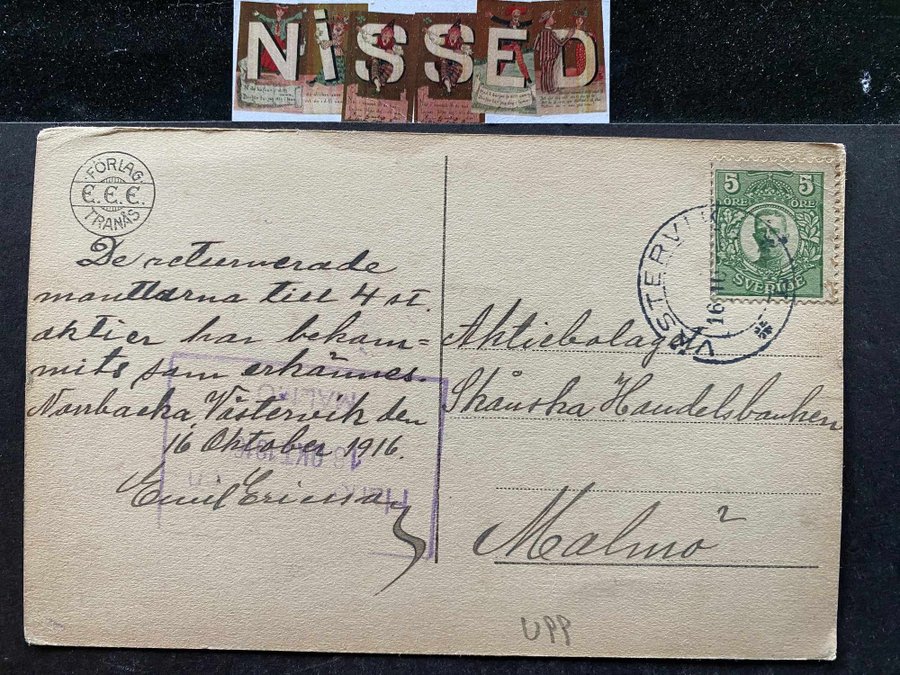 NiSSED
FÖRLAG
E.E.E.
TRANÅS
De returnerade
mantlarna till 4 st.
aktier har bekom=
mits som erkännes.
Västervik den
16 Oktober 1916.
Emil Ericsson
5 5
ÖRE ÖRE
SVERIGE
VÄSTERVIK
16
Aktiebolaget
Skånska Handelsbanken
Malmö
18 OKT. 1916
UPP